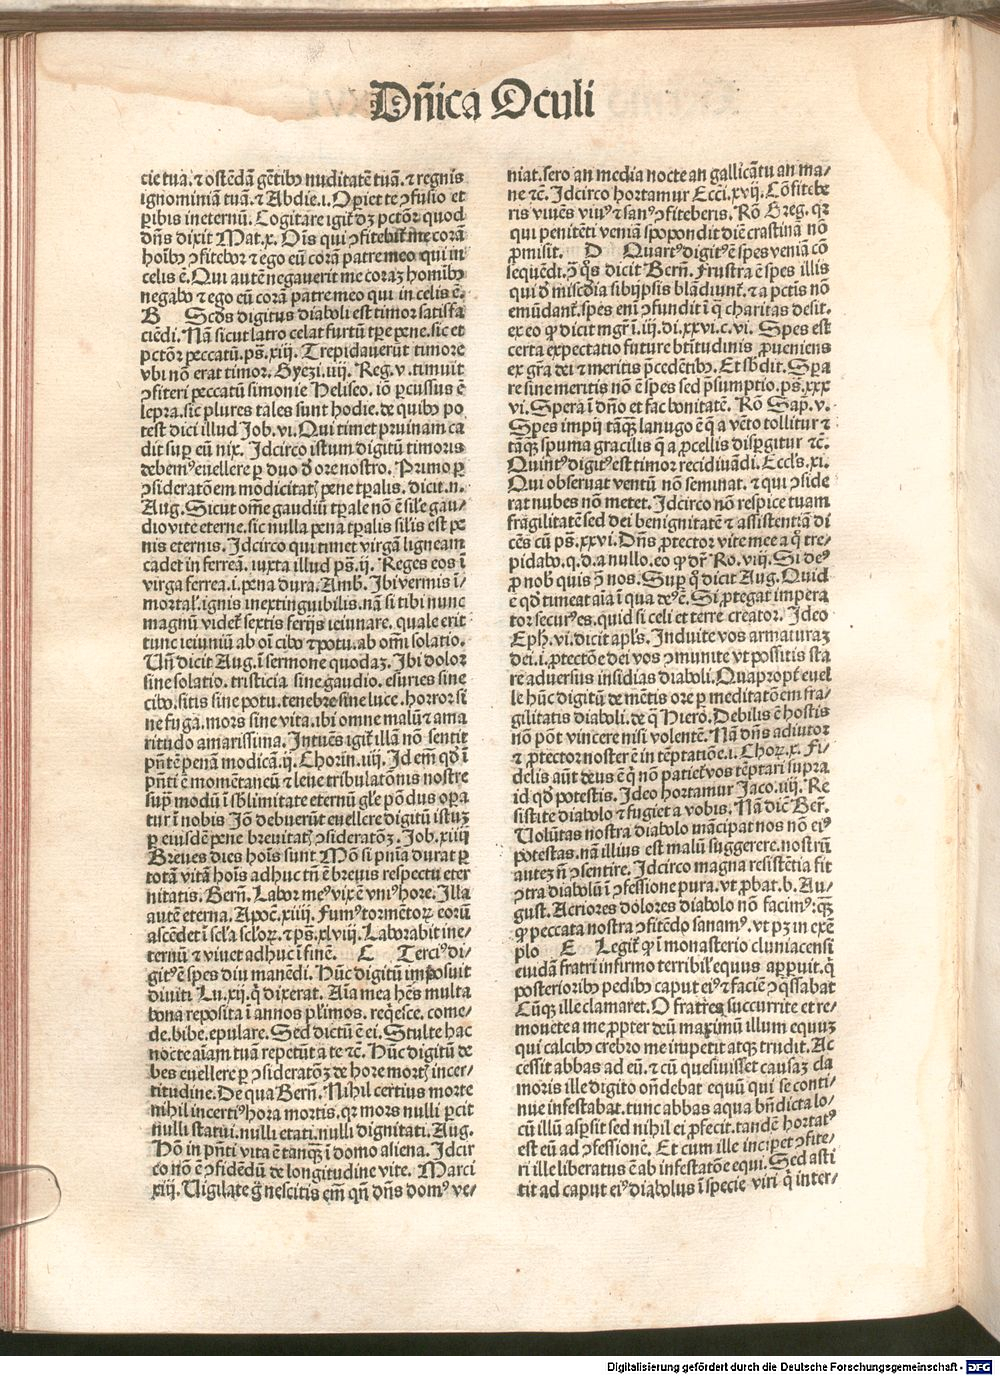 Dn̄ica Oculi
cie tua. ⁊ ostēdā gētibꝰ nuditatē tuā. ⁊ regnis
ignominiā tuā. ⁊ Abdie. i. Oꝑiet te ꝯfusio et
ꝑibis in eternū. Cogitare igit͛ dꝫ pctōr quod
dn̄s dixit Mat. x. Oīs qui ꝯfitebit͛ me corā
hoībꝰ ꝯfitebor ⁊ ego eū corā patre meo qui in
celis ē. Qui autē negauerit me coraꝫ homībꝰ
negabo ⁊ ego eū corā patre meo qui in celis ē.
B Scds digitus diaboli est timor satisfa
ciēdi. Nā sicut latro celat furtū tꝑe pene. sic et
pctōr peccatū. ps. xiij. Trepidauerūt timore
vbi nō erat timor. Gyezi. iiij. Reg. v. timuit
ꝯfiteri peccatū simonie Heliseo. iō ꝑcussus ē
lepra. sic plures tales sunt hodie. de quibꝰ po
test dici illud Job. vi. Qui timet pruinam ca
dit suꝑ eū nix. Jdcirco istum digitū timoris
debemꝰ euellere ꝑ duo d̄ ore nostro. Primo ꝑ
ꝯsideratōem modicitatꝭ pene tꝑalis. dicit. n.
Aug. Sicut om̄e gaudiū tꝑale nō ē sil̄e gau/
dio vite eterne. sic nulla pena tꝑalis sil̄is est pe
nis eternis. Jdcirco qui timet virgā ligneam
cadet in ferreā. iuxta illud ps. ij. Reges eos ī
virga ferrea. i. pena dura. Amb. Jbi vermis ī/
mortal͛. ignis inextinguibilis. nā si tibi nunc
magnū videt͛ sextis ferijs ieiunare. quale erit
tunc ieiuniū ab oī cibo ⁊ potu. ab om̄i solatio.
Vn̄ dicit Aug. ī sermone quodaꝫ. Jbi dolor
sine solatio. tristicia sine gaudio. esuries sine
cibo. sitis sine potu. tenebre sine luce. horror si
ne fuga. mors sine vita. ibi omne malū ⁊ ama
ritudo amarissima. Jntuēs igit͛ illā nō sentit
pn̄tē penam modicā. ij. Chorin. iiij. Jd em̄ qd̄ ī
pn̄ti ē momētaneū ⁊ leue tribulatōnis nostre
suꝑ modū ī sb̄limitate eternū gl̄e pōdus oꝑa
tur ī nobis Jō debuerūt euellere digitū istuꝫ
ꝑ eiusdē pene breuitatꝭ ꝯsideratōꝫ. Job. xiiij
Breues dies hoīs sunt Mō si pn̄ia durat ꝑ
totā vitā hoīs adhuc tn̄ ē breuis respectu eter
nitatis. Bern̄. Labor meꝰ vix ē vniꝰ hore. Jlla
autē eterna. Apoc̄. xiiij. Fumꝰ tormētoꝝ eorū
ascēdet ī scl̄a scl̄oꝝ. ⁊ ps. xlviij. Laborabit ine/
ternū ⁊ viuet adhuc ī finē. C Terciꝰ di/
gitꝰ ē spes diu manēdi. Hūc digitū imposuit
diuiti Lu. xij. q̇ dixerat. Aīa mea hēs multa
bona reposita ī annos pl̄imos. req̇esce. come/
de. bibe. epulare. Sed dictū ē ei. Stulte hac
nocte aīam tuā repetūt a te ⁊c̄. Hūc digitū de
bes euellere ꝑ ꝯsideratōꝫ de hore mortꝭ incer/
titudine. De qua Bern̄. Nihil certius morte
nihil incertiꝰ hora mortis. qꝛ mors nulli ꝑcit
nulli statui. nulli etati. nulli dignitati. Aug.
Hō in pn̄ti vita ē tanqꝫ ī domo aliena. Jdcir
co nō ē ꝯfidēdū de longitudine vite. Marci
xiij. Uigilate g̊ nescitis em̄ qn̄ dn̄s domꝰ ve/
niat. sero an media nocte an gallicātu an ma/
ne ⁊c̄. Jdcirco hortamur Ecci. xvij. Cōfitebe
ris viuēs viuꝰ ⁊ sanꝰ ꝯfiteberis. Rō Greg. qꝛ
qui penitēti veniā spopondit diē crastinā nō
ꝓmisit. D Quartꝰ digitꝰ ē spes veniā cō
sequēdi. ꝯ̄ q̊s dicit Bern̄. Frustra ē spes illis
qui d̄ mis̄cdia sibijpsis blādiunt͛. ⁊ a pctis nō
emūdant͛. spes eni ꝯfundit ī q̇ charitas desit.
ex eo ꝙ dicit mgr̄ ī. iij. di. xxvi. c. vi. Spes est
certa expectatio future btītudinis ꝓueniens
ex gr̄a dei ⁊ meritis p̄cedētibꝰ. Et sb̄dit. Spa
re sine meritis nō ē spes sed p̄sumptio. ps. xxx
vi. Spera ī dn̄o et fac bonitatē. Rō Sap. v.
Spes impij tāqꝫ lanugo ē q̄ a vēto tollitur ⁊
tāqꝫ spuma gracilis q̄ a ꝓcellis dispgitur ⁊c̄.
Quintꝰ digitꝰ est timor recidiuādi. Eccl̄s. xi.
Qui obseruat ventū nō seminat. ⁊ qui ꝯside
rat nubes nō metet. Jdcirco nō respice tuam
fragilitatē sed dei benignitatē ⁊ assistentiā di
cēs cū ps. xxvi. Dn̄s ꝓtector vite mee a q̊ tre/
pidabo. q. d. a nullo. eo ꝙ dr̄ Ro. viij. Si deꝰ
ꝓ nobꝭ quis ꝯ̄ nos. Suꝑ q̊ dicit Aug. Quid
ē qd̄ timeat aīa ī qua deꝰ ē. Si ꝓtegat impera
tor securꝰ es. quid si celi et terre creator. Jdeo
Eph. vi. dicit apl̄s. Jnduite vos armaturaꝫ
dei. i. ꝓtectōe dei vos ꝯmunite vt possitis sta
re aduersus insidias diaboli. Quapropt͛ euel
le hūc digitū de mētis ore ꝑ meditatōem fra/
gilitatis diaboli. de q̊ Hiero. Debilis ē hostis
nō pōt vincere nisi volentē. Nā dn̄s adiutor
⁊ ꝓtector noster ē in tēptatiōe. i. Choꝝ. x. Fi/
delis aūt deus ē q̇ nō patiet͛ vos tēptari supra
id qd̄ potestis. Jdeo hortamur Jaco. iiij. Re
sistite diabolo ⁊ fugiet a vobis. Nā diē Ber̄.
Uolūtas nostra diabolo mācipat nos nō eiꝰ
potestas. nā illius est malū suggerere. nostrū
auteꝫ n̄ ꝯsentire. Jdcirco magna resistētia fit
ꝯtra diabolū ī ꝯfessione pura. vt ꝓbat. b. Au/
gust. Acriores dolores diabolo nō facimꝰ: qꝫ
qn̄ peccata nostra ꝯfitēdo sanamꝰ. vt pꝫ in exē
plo E Legit͛ ꝙ ī monasterio cluniacensi
cuidā fratri infirmo terribil͛ equus apꝑuit. q̇
posterioribꝰ pedibꝰ caput eiꝰ ⁊ faciē ꝯq̄ssabat
Cūqꝫ ille clamaret. O fratres succurrite et re/
mouete a me ꝓpter deū maximū illum equuꝫ
qui calcibꝰ crebro me impetit atqꝫ trudit. Ac
cessit abbas ad eū. ⁊ cū quesiuisset causaꝫ cla
moris ille digito on̄debat equū qui se conti/
nue infestabat. tunc abbas aqua bn̄dicta lo/
cū illū asꝑsit sed nihil ei ꝓfecit. tandē hortatꝰ
est eū ad ꝯfessionē. Et cum ille incipet ꝯfite/
ri ille liberatus ē ab infestatōe equi. Sed asti
tit ad caput eiꝰ diabolus ī specie viri q̇ inter/
Digitalisierung gefördert durch die Deutsche Forschungsgemeinschaft - DFG